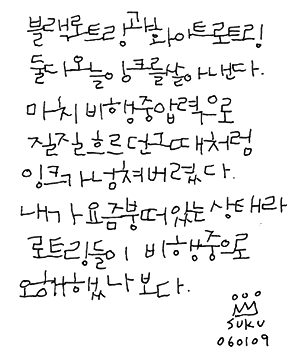 블랙로트링과 화이트로트링
둘다 오늘 잉크를 쏟아낸다.
마치 비행중압력으로
질질 흐르던 그때처럼
잉크가 넘쳐버렸다.
내가 요즘 붕떠있는 상태라
로트링들이 비행중으로
오해했나보다.
SUKU
060109